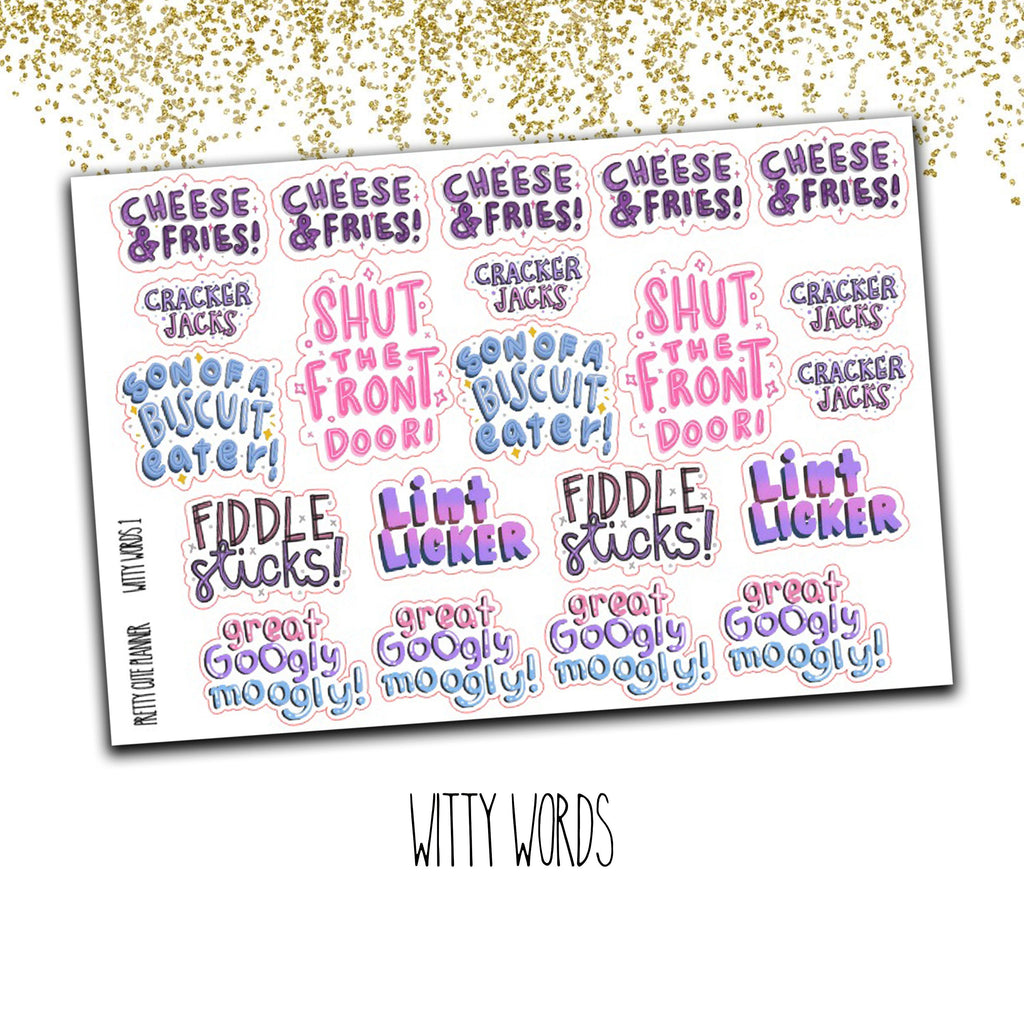 CHEESE
& FRIES!
CHEESE
& FRIES!
CHEESE
& FRIES!
CHEESE
& FRIES!
CHEESE
& FRIES!
CRACKER
JACKS
SHUT
THE
FRONT
DOOR!
CRACKER
JACKS
SHUT
THE
FRONT
DOOR!
CRACKER
JACKS
SON OF A
BISCUIT
eater!
SON OF A
BISCUIT
eater!
CRACKER
JACKS
FIDDLE
sticks!
Lint
LICKER
FIDDLE
sticks!
Lint
LICKER
great
GoOgly
moogly!
great
GoOgly
moogly!
great
GoOgly
moogly!
great
GoOgly
moogly!
PRETTY CUTE PLANNER WITTY WORDS 1
WITTY WORDS